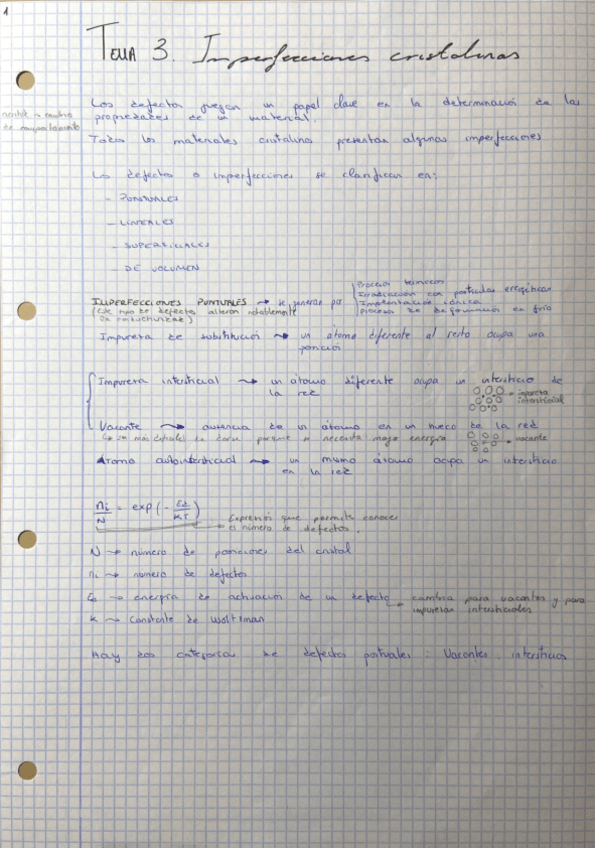 1
TEMA 3. Imperfecciones cristalinas
Los defectos juegan un papel clave en la determinació de las
propiedades de un material.
de comportamiento
Todos los materiales cristalinos presentan algunas imperfecciones
Los defectos o imperfecciones se clasifican en:
- PUNTUALES
- LINEALES
- SUPERFICIALES
- DE VOLUMEN
Procesos térmicos
Irradiación con partículas energéticas
IMPERFECCIONES PUNTUALES → se generan por Implantación iónica
(Este tipo de defectos alteran notablemente Procesos de deformación en frío
la conductividad)
Impureza de substitució → un átomo diferente al resto ocupa una
posición
Impureza intersticial → un átomo diferente ocupa un intersticio de
la red → impureza
intersticial
Vacante → ausencia de un átomo en un hueco de la red
en darse porque se necesita mayor energía → vacante
Átomo autointersticial → un mismo átomo ocupa un intersticio
en la red
ni/N = exp (- Ed/KT)
Expresión que permite conocer
el número de defectos.
N → número de posiciones del cristal
ni → número de defectos
Ed → energía de activación de un defecto → cambia para vacantes y para
impurezas intersticiales
K → Constante de Woltzman
Hay dos categorías de defectos puntuales: Vacantes, intersticios